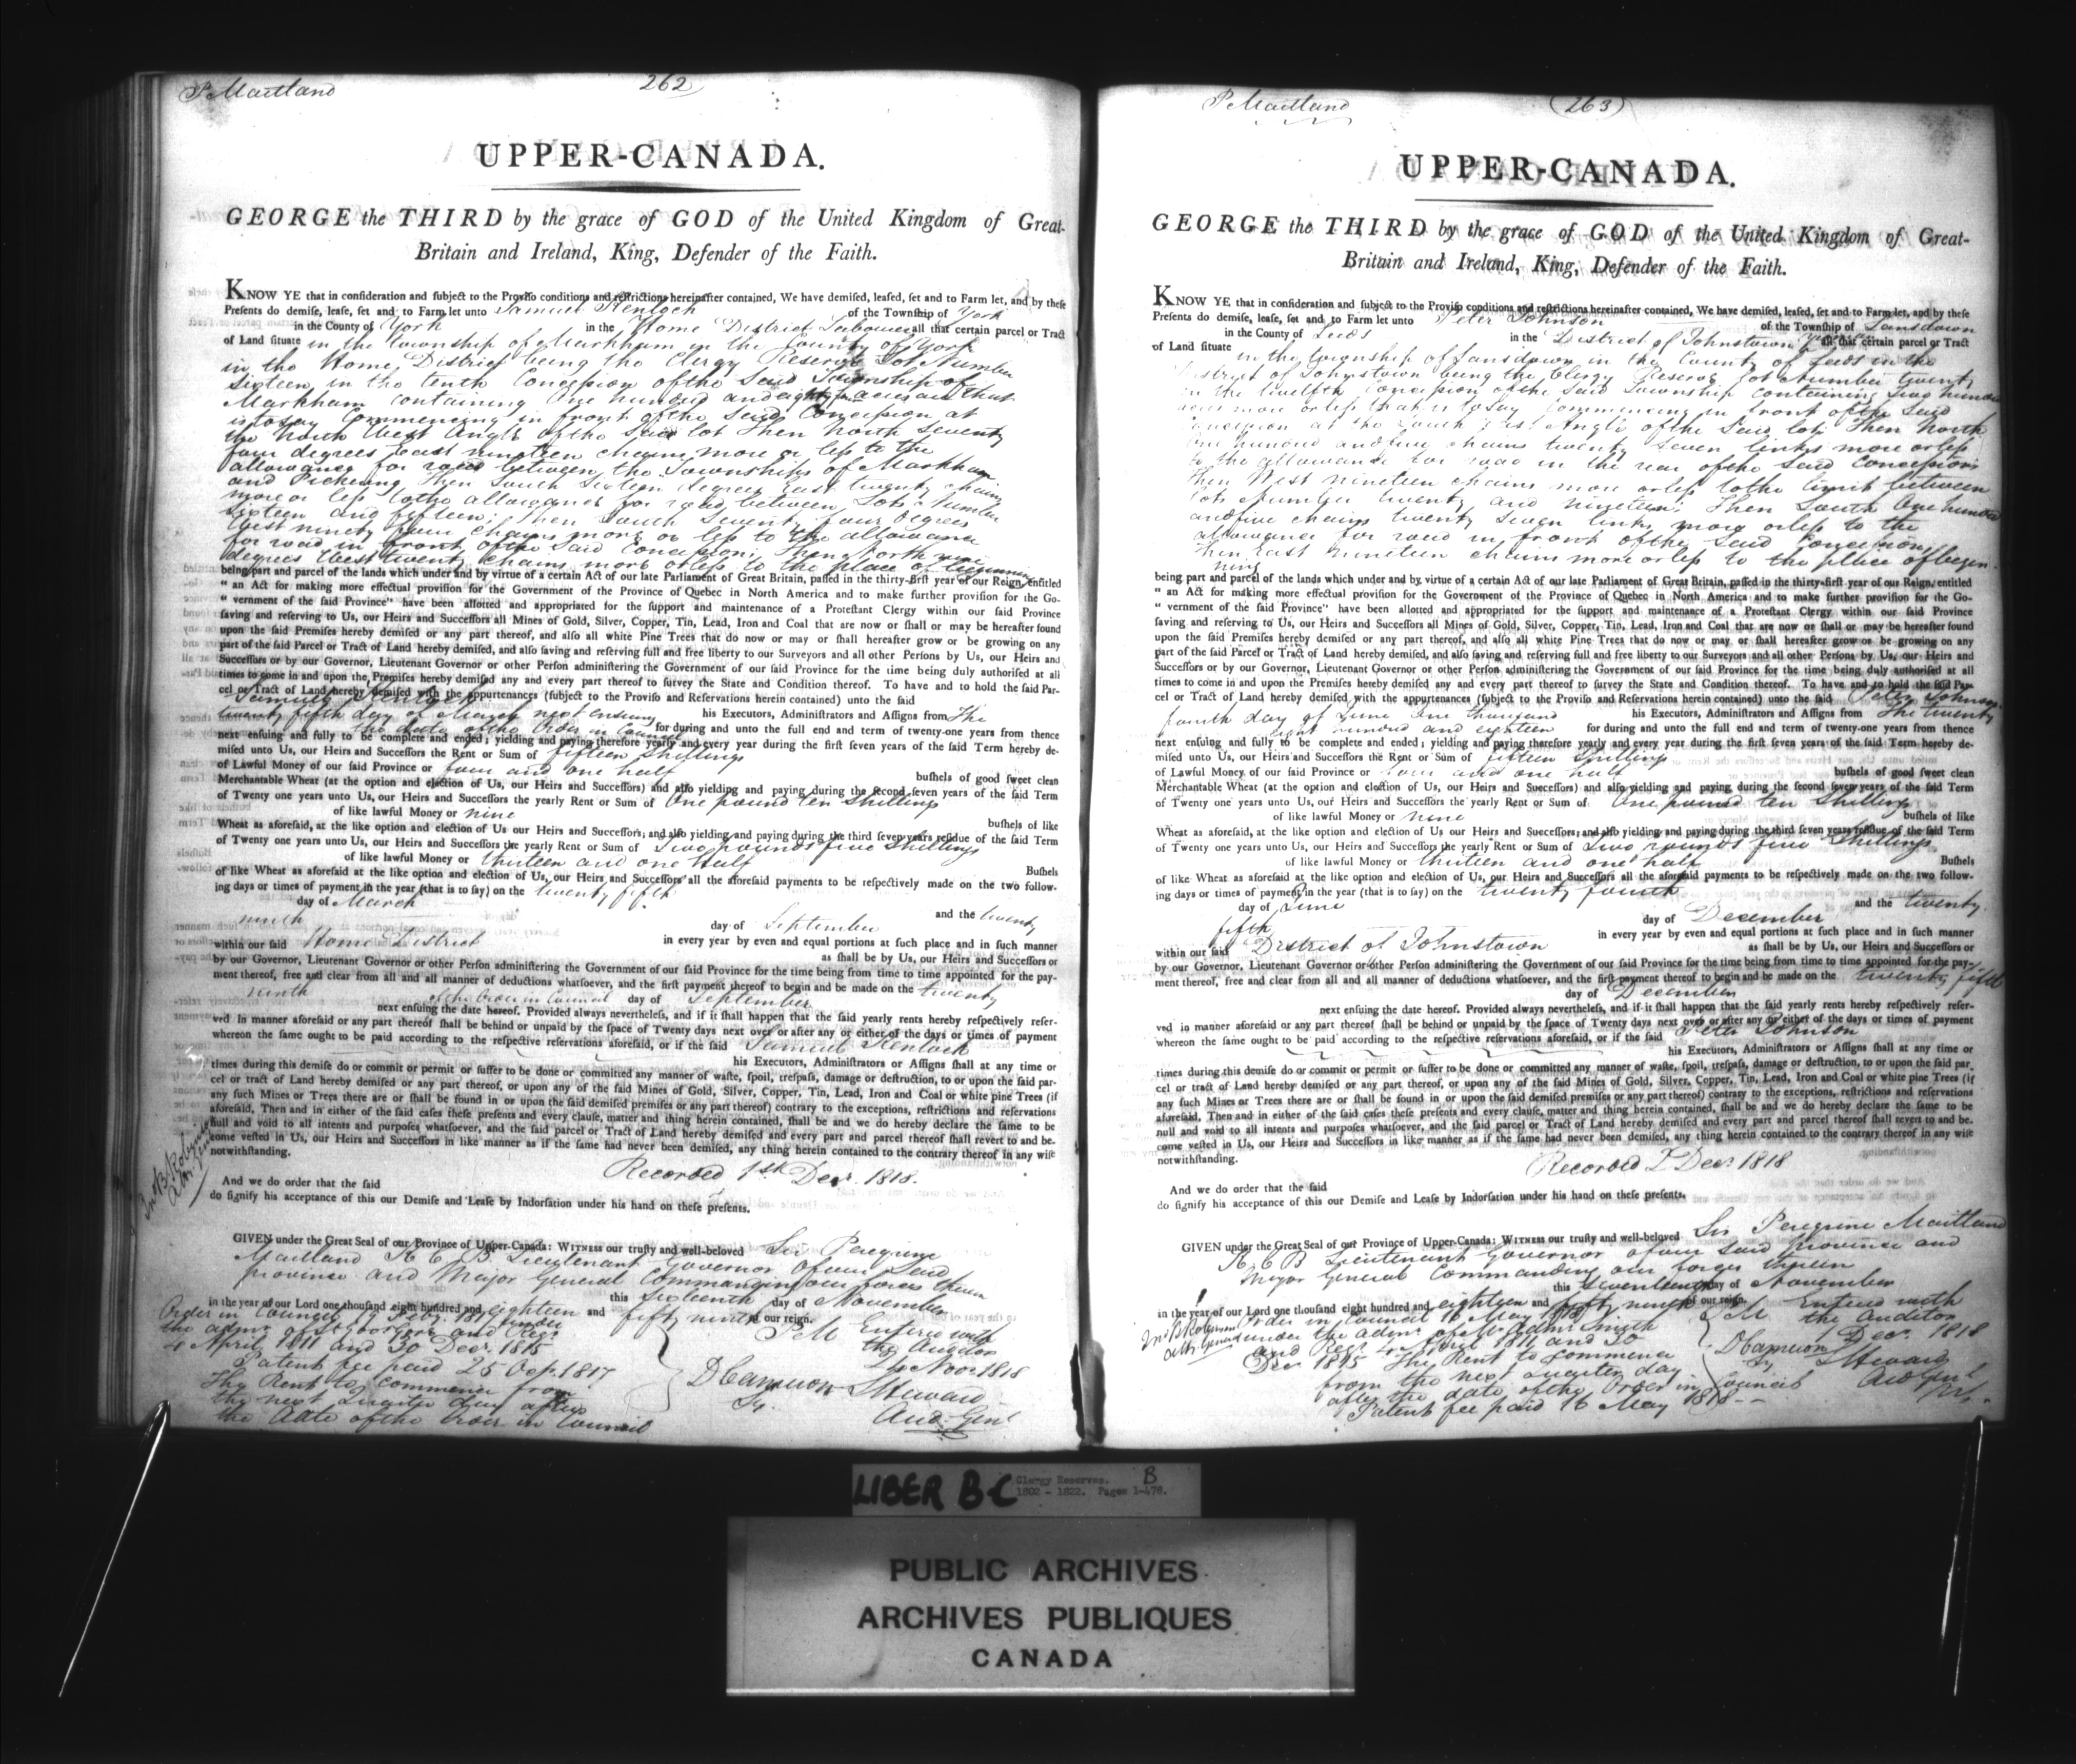 P Maitland
262
UPPER-CANADA.
GEORGE the THIRD by the grace of GOD of the United Kingdom of Great-
Britain and Ireland, King, Defender of the Faith.
KNOW YE that in consideration and subject to the Proviso conditions and restrictions hereinafter contained, We have demised, leased, set and to Farm let, and by these
Presents do demise, lease, set and to Farm let unto Samuel Kenloch of the Township of York
in the County of York in the Home District all that certain parcel or Tract
of Land situate in the Township of Markham in the County of York
in the Home District being the Clergy Reserve Lot Number
Sixteen in the tenth Concession of the said Township of
Markham containing One hundred and eighty acres that
is to say Commencing in front of the said Concession at
the North West Angle of the said lot Then North Seventy
four degrees east nineteen chains more or less to the
allowance for road between the Townships of Markham
and Pickering Then South Sixteen degrees East twenty chains
more or less to the allowance for road between Lots Number
Sixteen and fifteen; Then South Seventy four Degrees
West ninety four chains more or less to the allowance
for road in front of the said Concession; Then North
degrees West twenty chains more or less to the place of beginning
being part and parcel of the lands which under and by virtue of a certain Act of our late Parliament of Great Britain, passed in the thirty-first year of our Reign, entitled
" an Act for making more effectual provision for the Government of the Province of Quebec in North America and to make further provision for the Go-
" vernment of the said Province" have been allotted and appropriated for the support and maintenance of a Protestant Clergy within our said Province
saving and reserving to Us, our Heirs and Successors all Mines of Gold, Silver, Copper, Tin, Lead, Iron and Coal that are now or shall or may be hereafter found
upon the said Premises hereby demised or any part thereof, and also all white Pine Trees that do now or may or shall hereafter grow or be growing on any
part of the said Parcel or Tract of Land hereby demised, and also saving and reserving full and free liberty to our Surveyors and all other Persons by Us, our Heirs and
Successors or by our Governor, Lieutenant Governor or other Person administering the Government of our said Province for the time being duly authorised at all
times to come in and upon the Premises hereby demised any and every part thereof to survey the State and Condition thereof. To have and to hold the said Par-
cel or Tract of Land hereby demised with the appurtenances (subject to the Proviso and Reservations herein contained) unto the said
Samuel Kenloch his Executors, Administrators and Assigns from The
twenty fifth day of March next ensuing
the date of the Order in Council for during and unto the full end and term of twenty-one years from thence
next ensuing and fully to be complete and ended; yielding and paying therefore yearly and every year during the first seven years of the said Term hereby de-
mised unto Us, our Heirs and Successors the Rent or Sum of fifteen Shillings
of Lawful Money of our said Province or four and one half bushels of good sweet clean
Merchantable Wheat (at the option and election of Us, our Heirs and Successors) and also yielding and paying during the second seven years of the said Term
of Twenty one years unto Us, our Heirs and Successors the yearly Rent or Sum of One pound ten Shillings
of like lawful Money or nine bushels of like
Wheat as aforesaid, at the like option and election of Us our Heirs and Successors, and also yielding and paying during the third seven years residue of the said Term
of Twenty one years unto Us, our Heirs and Successors the yearly Rent or Sum of Two pounds five Shillings
of like lawful Money or thirteen and one half Bushels
of like Wheat as aforesaid at the like option and election of Us, our Heirs and Successors all the aforesaid payments to be respectively made on the two follow-
ing days or times of payment in the year (that is to say) on the twenty fifth
day of March and the twenty
ninth day of September
in every year by even and equal portions at such place and in such manner
within our said Home District as shall be by Us, our Heirs and Successors or
by our Governor, Lieutenant Governor or other Person administering the Government of our said Province for the time being from time to time appointed for the pay-
ment thereof, free and clear from all and all manner of deductions whatsoever, and the first payment thereof to begin and be made on the twenty
ninth day of September
of the Order in Council
next ensuing the date hereof. Provided always nevertheless, and if it shall happen that the said yearly rents hereby respectively reser-
ved in manner aforesaid or any part thereof shall be behind or unpaid by the space of Twenty days next over or after any or either of the days or times of payment
whereon the same ought to be paid according to the respective reservations aforesaid, or if the said Samuel Kenloch
his Executors, Administrators or Assigns shall at any time or
times during this demise do or commit or permit or suffer to be done or committed any manner of waste, spoil, trespass, damage or destruction, to or upon the said par-
cel or tract of Land hereby demised or any part thereof, or upon any of the said Mines of Gold, Silver, Copper, Tin, Lead, Iron and Coal or white pine Trees (if
any such Mines or Trees there are or shall be found in or upon the said demised premises or any part thereof) contrary to the exceptions, restrictions and reservations
aforesaid, Then and in either of the said cases these presents and every clause, matter and thing herein contained, shall be and we do hereby declare the same to be
null and void to all intents and purposes whatsoever, and the said parcel or Tract of Land hereby demised and every part and parcel thereof shall revert to and be-
come vested in Us, our Heirs and Successors in like manner as if the same had never been demised, any thing herein contained to the contrary thereof in any wise
notwithstanding.
Recorded 1st Decr. 1818.
And we do order that the said
do signify his acceptance of this our Demise and Lease by Indorsation under his hand on these presents.
GIVEN under the Great Seal of our Province of Upper-Canada: WITNESS our trusty and well-beloved Sir Peregrine
Maitland K C B Lieutenant Governor of our said
Province and Major General Commanding our forces therein
this Sixteenth day of November
in the year of our Lord one thousand eight hundred and eighteen and fifty ninth of our reign.
Order in Council 19 Feby. 1817 under
the admn of Lt Govr Gore and Regs
4 April 1811 and 30 Decr. 1815
Patent fee paid 25 Oct. 1817
The Rent to commence from
the next Quarter day after
the date of the Order in Council
P M Entered with
the Auditor
24 Novr 1818
D Cameron
Sy.
S Heward
Aud. Genl
Jno B. Robinson
Att. Genl
P Maitland
263
UPPER-CANADA.
GEORGE the THIRD by the grace of GOD of the United Kingdom of Great-
Britain and Ireland, King, Defender of the Faith.
KNOW YE that in consideration and subject to the Proviso conditions and restrictions hereinafter contained, We have demised, leased, set and to Farm let, and by these
Presents do demise, lease, set and to Farm let unto Peter Johnson of the Township of Lansdown
in the County of Leeds in the District of Johnstown all that certain parcel or Tract
of Land situate in the Township of Lansdown in the County of Leeds in the
District of Johnstown being the Clergy Reserve Lot Number twenty
in the twelfth Concession of the said Township containing Two hundred
acres more or less that is to say Commencing in front of the said
Concession at the South East Angle of the said lot; Then North
One hundred and five chains twenty seven links more or less
to the allowance for road in the rear of the said Concession;
Then West nineteen chains more or less to the limit between
Lots Number twenty and nineteen; Then South One hundred
and five chains twenty seven links more or less to the
allowance for road in front of the said Concession;
Then East nineteen chains more or less to the place of begin-
ning
being part and parcel of the lands which under and by virtue of a certain Act of our late Parliament of Great Britain, passed in the thirty-first year of our Reign, entitled
" an Act for making more effectual provision for the Government of the Province of Quebec in North America and to make further provision for the Go-
" vernment of the said Province" have been allotted and appropriated for the support and maintenance of a Protestant Clergy within our said Province
saving and reserving to Us, our Heirs and Successors all Mines of Gold, Silver, Copper, Tin, Lead, Iron and Coal that are now or shall or may be hereafter found
upon the said Premises hereby demised or any part thereof, and also all white Pine Trees that do now or may or shall hereafter grow or be growing on any
part of the said Parcel or Tract of Land hereby demised, and also saving and reserving full and free liberty to our Surveyors and all other Persons by Us, our Heirs and
Successors or by our Governor, Lieutenant Governor or other Person administering the Government of our said Province for the time being duly authorised at all
times to come in and upon the Premises hereby demised any and every part thereof to survey the State and Condition thereof. To have and to hold the said Par-
cel or Tract of Land hereby demised with the appurtenances (subject to the Proviso and Reservations herein contained) unto the said Peter Johnson
his Executors, Administrators and Assigns from The twenty
fourth day of June One thousand
eight hundred and eighteen for during and unto the full end and term of twenty-one years from thence
next ensuing and fully to be complete and ended; yielding and paying therefore yearly and every year during the first seven years of the said Term hereby de-
mised unto Us, our Heirs and Successors the Rent or Sum of fifteen Shillings
of Lawful Money of our said Province or four and one half bushels of good sweet clean
Merchantable Wheat (at the option and election of Us, our Heirs and Successors) and also yielding and paying, during the second seven years of the said Term
of Twenty one years unto Us, our Heirs and Successors the yearly Rent or Sum of One pound ten Shillings
of like lawful Money or nine bushels of like
Wheat as aforesaid, at the like option and election of Us our Heirs and Successors, and also yielding and paying during the third seven years residue of the said Term
of Twenty one years unto Us, our Heirs and Successors the yearly Rent or Sum of Two pounds five Shillings
of like lawful Money or thirteen and one half Bushels
of like Wheat as aforesaid at the like option and election of Us, our Heirs and Successors all the aforesaid payments to be respectively made on the two follow-
ing days or times of payment in the year (that is to say) on the twenty fourth
day of June and the twenty
fifth day of December
in every year by even and equal portions at such place and in such manner
within our said District of Johnstown as shall be by Us, our Heirs and Successors or
by our Governor, Lieutenant Governor or other Person administering the Government of our said Province for the time being from time to time appointed for the pay-
ment thereof, free and clear from all and all manner of deductions whatsoever, and the first payment thereof to begin and be made on the twenty fifth
day of December
next ensuing the date hereof. Provided always nevertheless, and if it shall happen that the said yearly rents hereby respectively reser-
ved in manner aforesaid or any part thereof shall be behind or unpaid by the space of Twenty days next over or after any or either of the days or times of payment
whereon the same ought to be paid according to the respective reservations aforesaid, or if the said Peter Johnson
his Executors, Administrators or Assigns shall at any time or
times during this demise do or commit or permit or suffer to be done or committed any manner of waste, spoil, trespass, damage or destruction, to or upon the said par-
cel or tract of Land hereby demised or any part thereof, or upon any of the said Mines of Gold, Silver, Copper, Tin, Lead, Iron and Coal or white pine Trees (if
any such Mines or Trees there are or shall be found in or upon the said demised premises or any part thereof) contrary to the exceptions, restrictions and reservations
aforesaid, Then and in either of the said cases these presents and every clause, matter and thing herein contained, shall be and we do hereby declare the same to be
null and void to all intents and purposes whatsoever, and the said parcel or Tract of Land hereby demised and every part and parcel thereof shall revert to and be-
come vested in Us, our Heirs and Successors in like manner as if the same had never been demised, any thing herein contained to the contrary thereof in any wise
notwithstanding.
Recorded 2 Decr. 1818
And we do order that the said
do signify his acceptance of this our Demise and Lease by Indorsation under his hand on these presents.
GIVEN under the Great Seal of our Province of Upper-Canada: WITNESS our trusty and well-beloved Sir Peregrine Maitland
K C B Lieutenant Governor of our said Province and
Major General Commanding our forces therein
this Seventeenth day of November
in the year of our Lord one thousand eight hundred and eighteen and fifty ninth of our reign.
Jno B Robinson
Atty. General
Order in Council 16 May 1818
under the admn of Mr Admr Smith
and Regs 4 April 1811 and 30
Decr 1815 The Rent to Commence
from the next Quarter day
after the date of the Order in Council
Patent fee paid 16 May 1818
P M Entered with
the Auditor
1 Decr. 1818
D Cameron
Sy
S Heward
Aud Genl
LIBER B C
Clergy Reserves. B
1802 - 1822. Pages 1-478.
PUBLIC ARCHIVES
ARCHIVES PUBLIQUES
CANADA